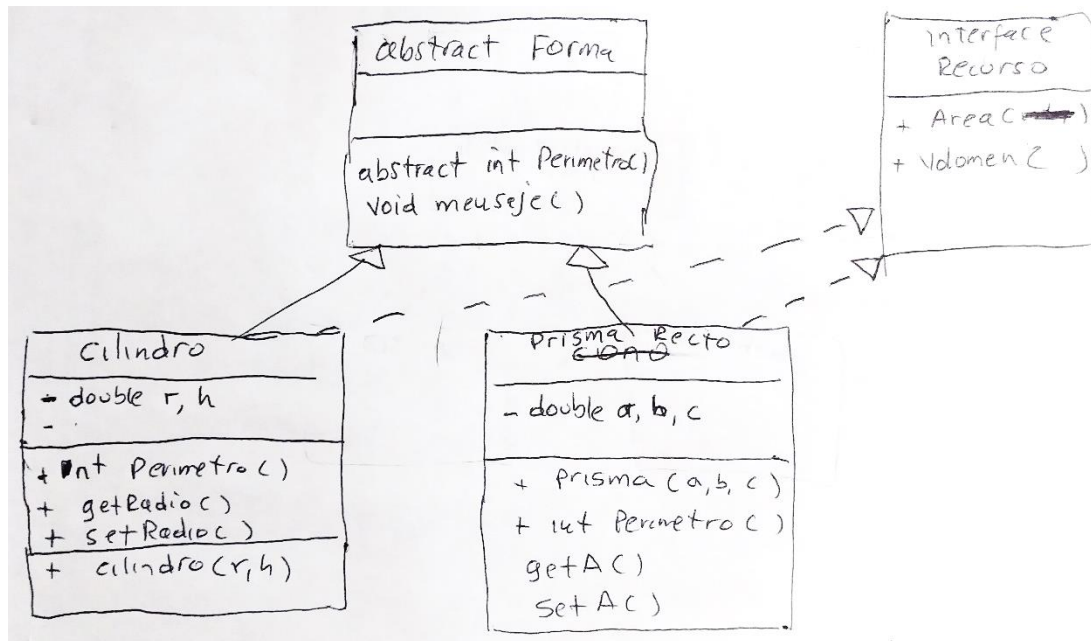 abstract Forma
abstract int Perimetro()
void meuseje()
interface
Recurso
+ Area( )
+ Volomen( )
Cilindro
- double r, h
-
+ int Perimetro()
+ getRadio()
+ setRadio()
+ cilindro(r,h)
Prisma Recto
- double a, b, c
+ Prisma (a, b, c)
+ int Perimetro()
getA()
SetA()